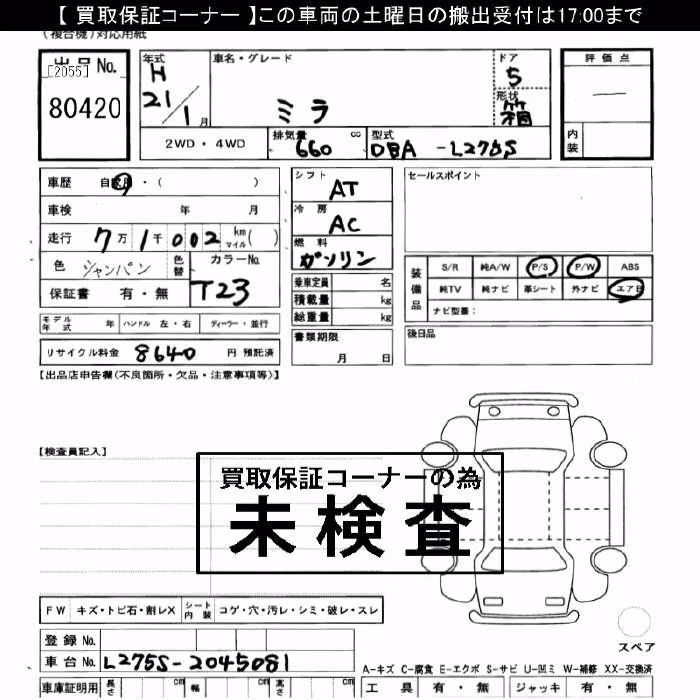 【 買取保証コーナー 】この車両の土曜日の搬出受付は17:00まで
(複合機)対応用紙
出品No.
[2055]
80420
年式
H
21/1月
車名・グレード
ミラ
ドア
5
形状
箱
評価点
内装
2WD・4WD
排気量 cc
660
型式
DBA -L275S
車歴 自家用・( )
車検 年 月
走行 7万1千002 km マイル( )
色 シャンパン 色替
カラーNo.
T23
保証書 有・無
シフト
AT
冷房
AC
燃料
ガソリン
乗車定員 名
積載量 kg
総重量 kg
書類期限
月 日
セールスポイント
装備品
S/R 純A/W P/S P/W ABS
純TV 純ナビ 革シート 外ナビ エアB
ナビ型番:
後日品
モデル年式 年 ハンドル 左・右 ディーラー・並行
リサイクル料金 8640 円 預託済
【出品店申告欄(不良箇所・欠品・注意事項等)】
【検査員記入】
買取保証コーナーの為
未検査
FW キズ・トビ石・割レX シート内装 コゲ・穴・汚レ・シミ・破レ・スレ
登録No.
車台No. L275S-2045081
車庫証明用 長さ cm 幅 cm 高さ cm
スペア
A-キズ C-腐食 E-エクボ S-サビ U-凹ミ W-補修 XX-交換済
工具 有・無 ジャッキ 有・無